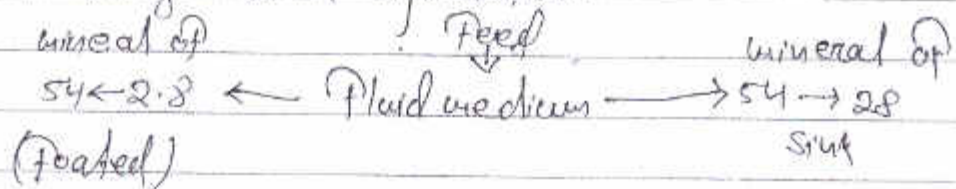 Feed
mineal of mineral of
54 ← 2.8 ← Fluid medium → 54 → 28
(Foated) Sink